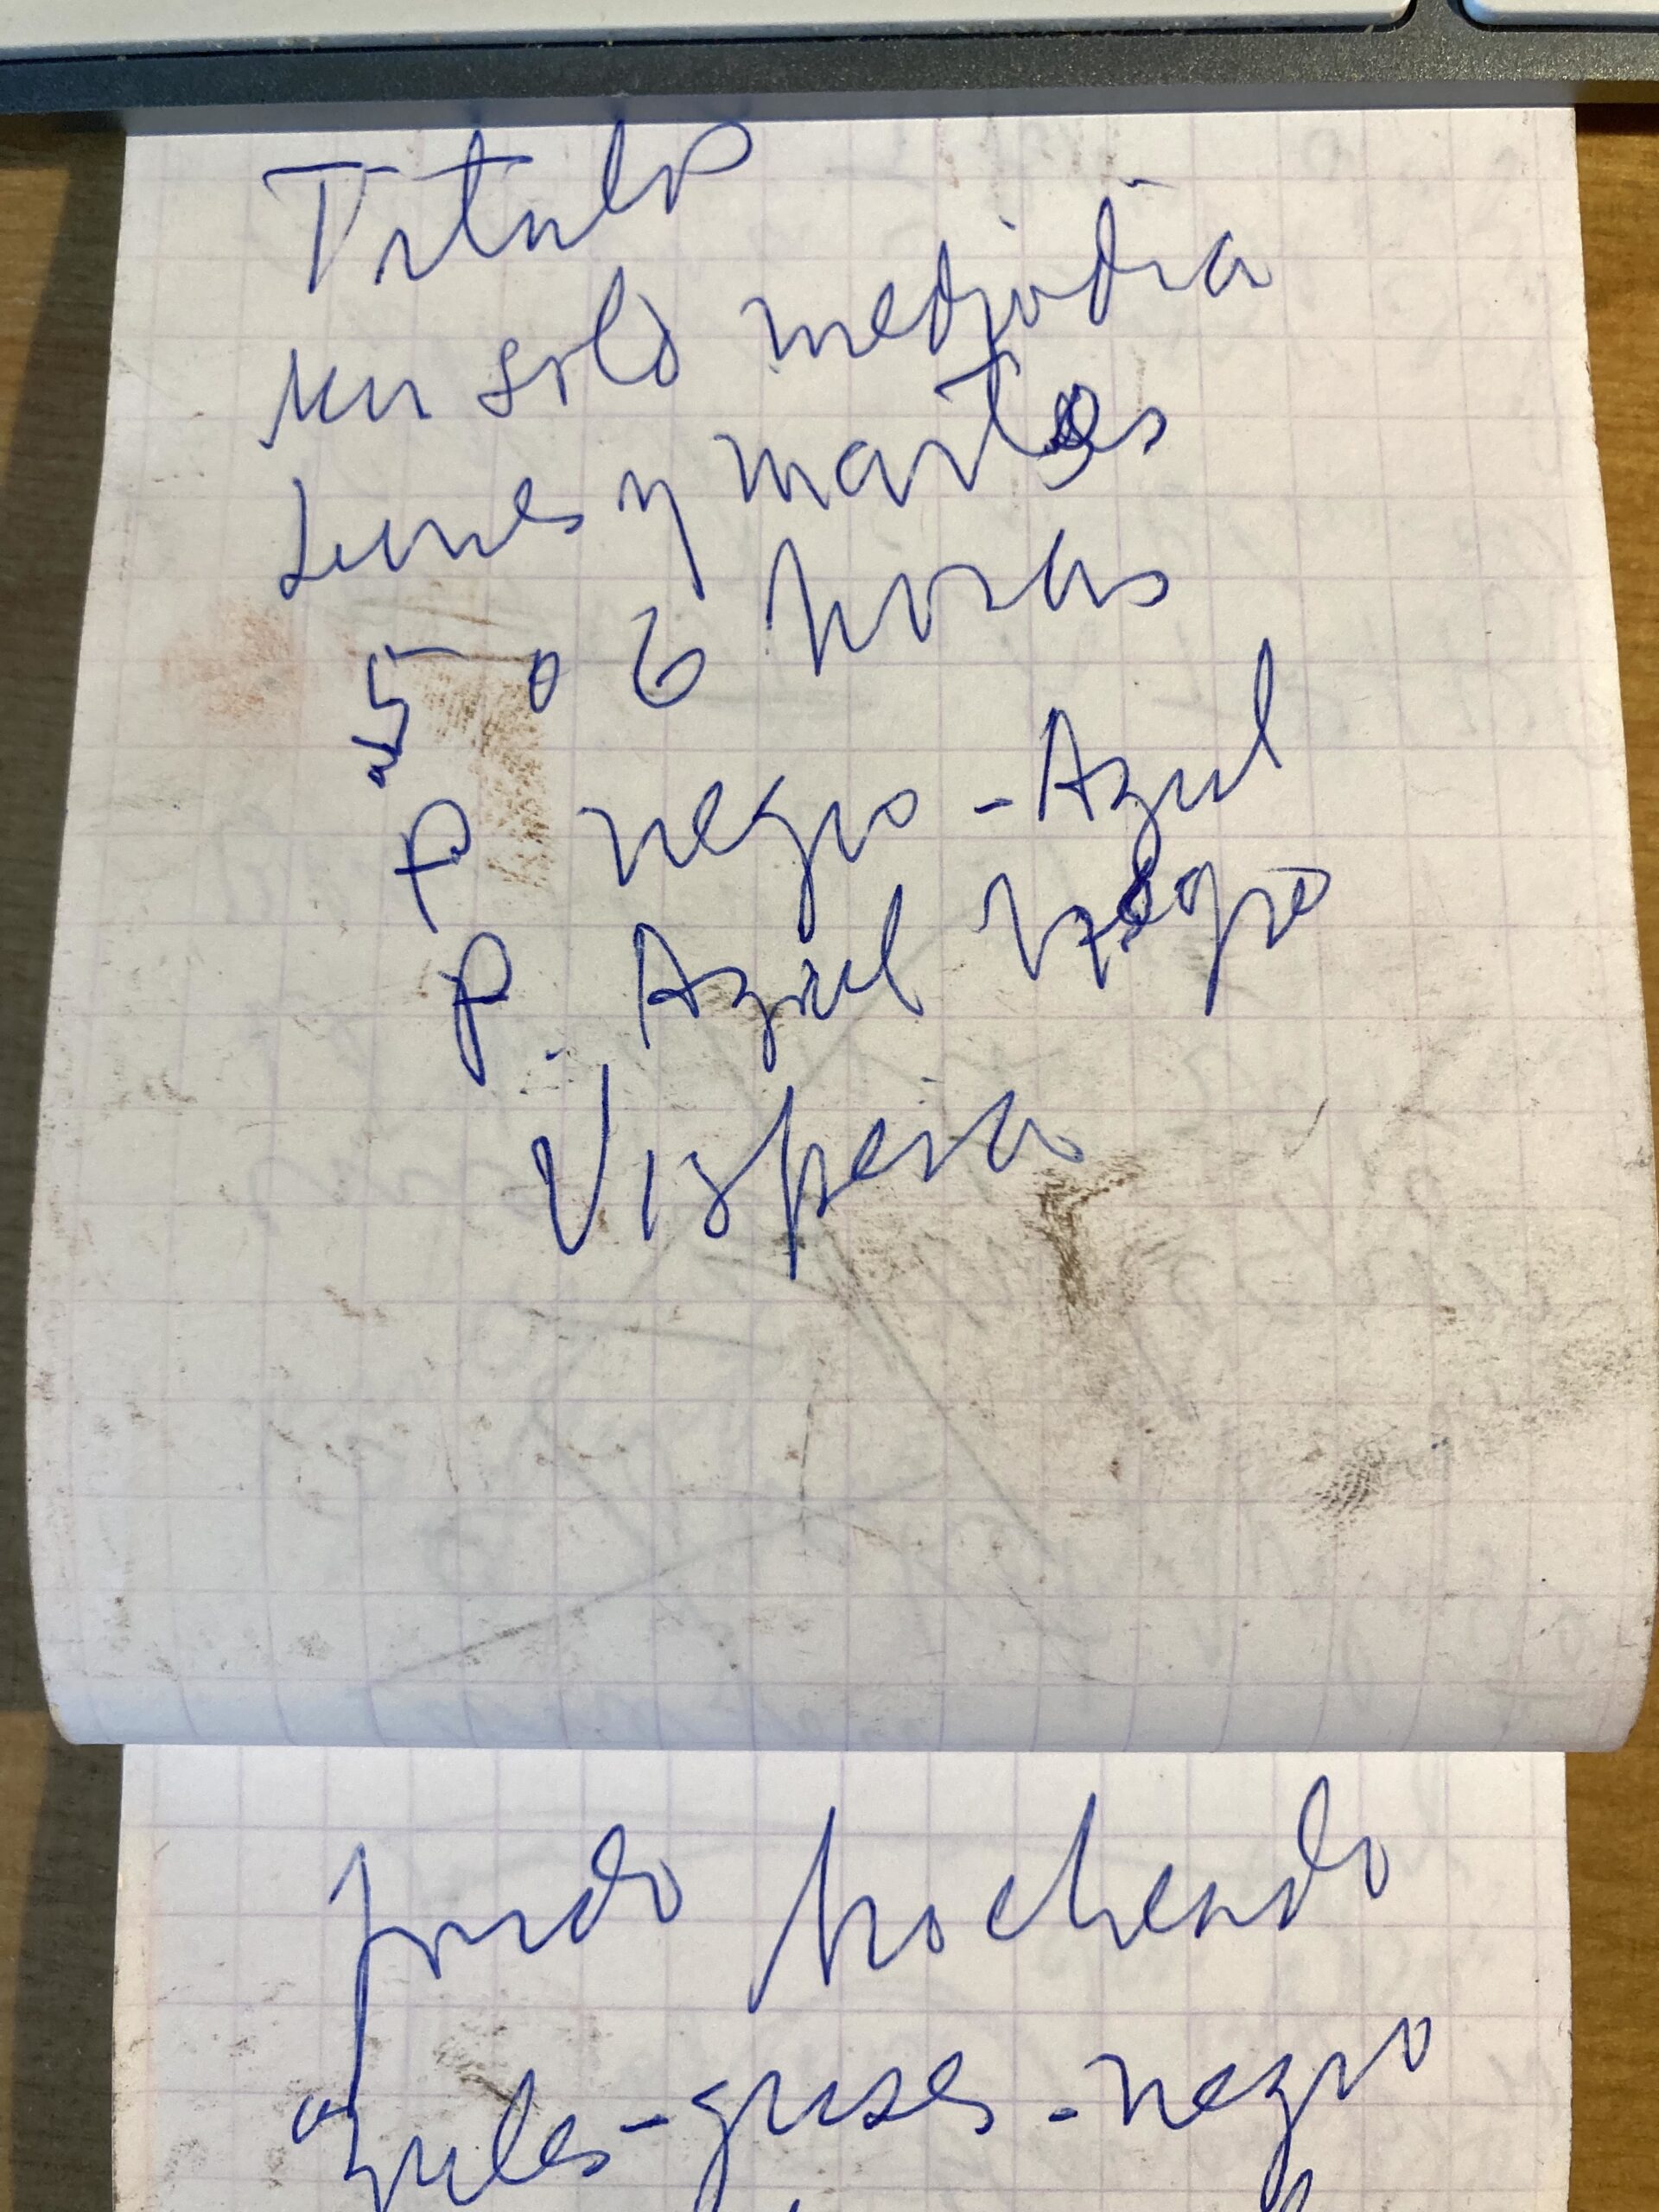 Titulo
un solo mediodia
Lunes y martes
5 o 6 horas
P negro - Azul
P. Azul negro
Vispera
fondo nocheado
azules - grises - negro